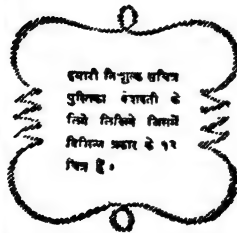 हमारी निःशुल्क सचित्र
पुस्तिका वंशावती के
लिये लिखिये जिसमें
विभिन्न प्रकार के १२
चित्र हैं।